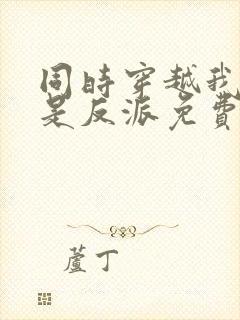 同時穿越我
是反派免費
蘆丁